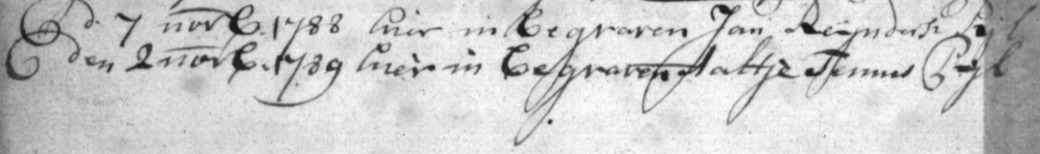 d 7 novb. 1788 hier in begraven Jan Reijnders Pijl
den 2 novb. 1789 hier in begraven Aaltje Teunis Pijl